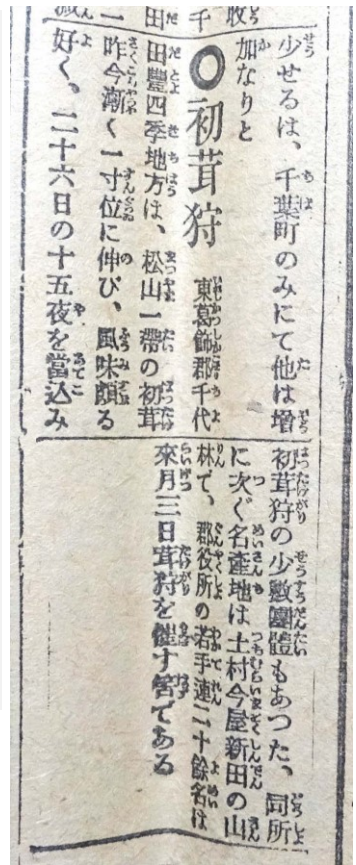 少せるは、千葉町のみにて他は増
加なりと
◎初茸狩 東葛飾郡千代
田豐四季地方は、松山一帶の初茸
昨今漸く一寸位に伸び、風味頗る
好く、二十六日の十五夜を當込み
初茸狩の少數團體もあつた、同所
に次ぐ名產地は土村今屋新田の山
林で、郡役所の若手連二十餘名は
來月三日茸狩を催す筈である